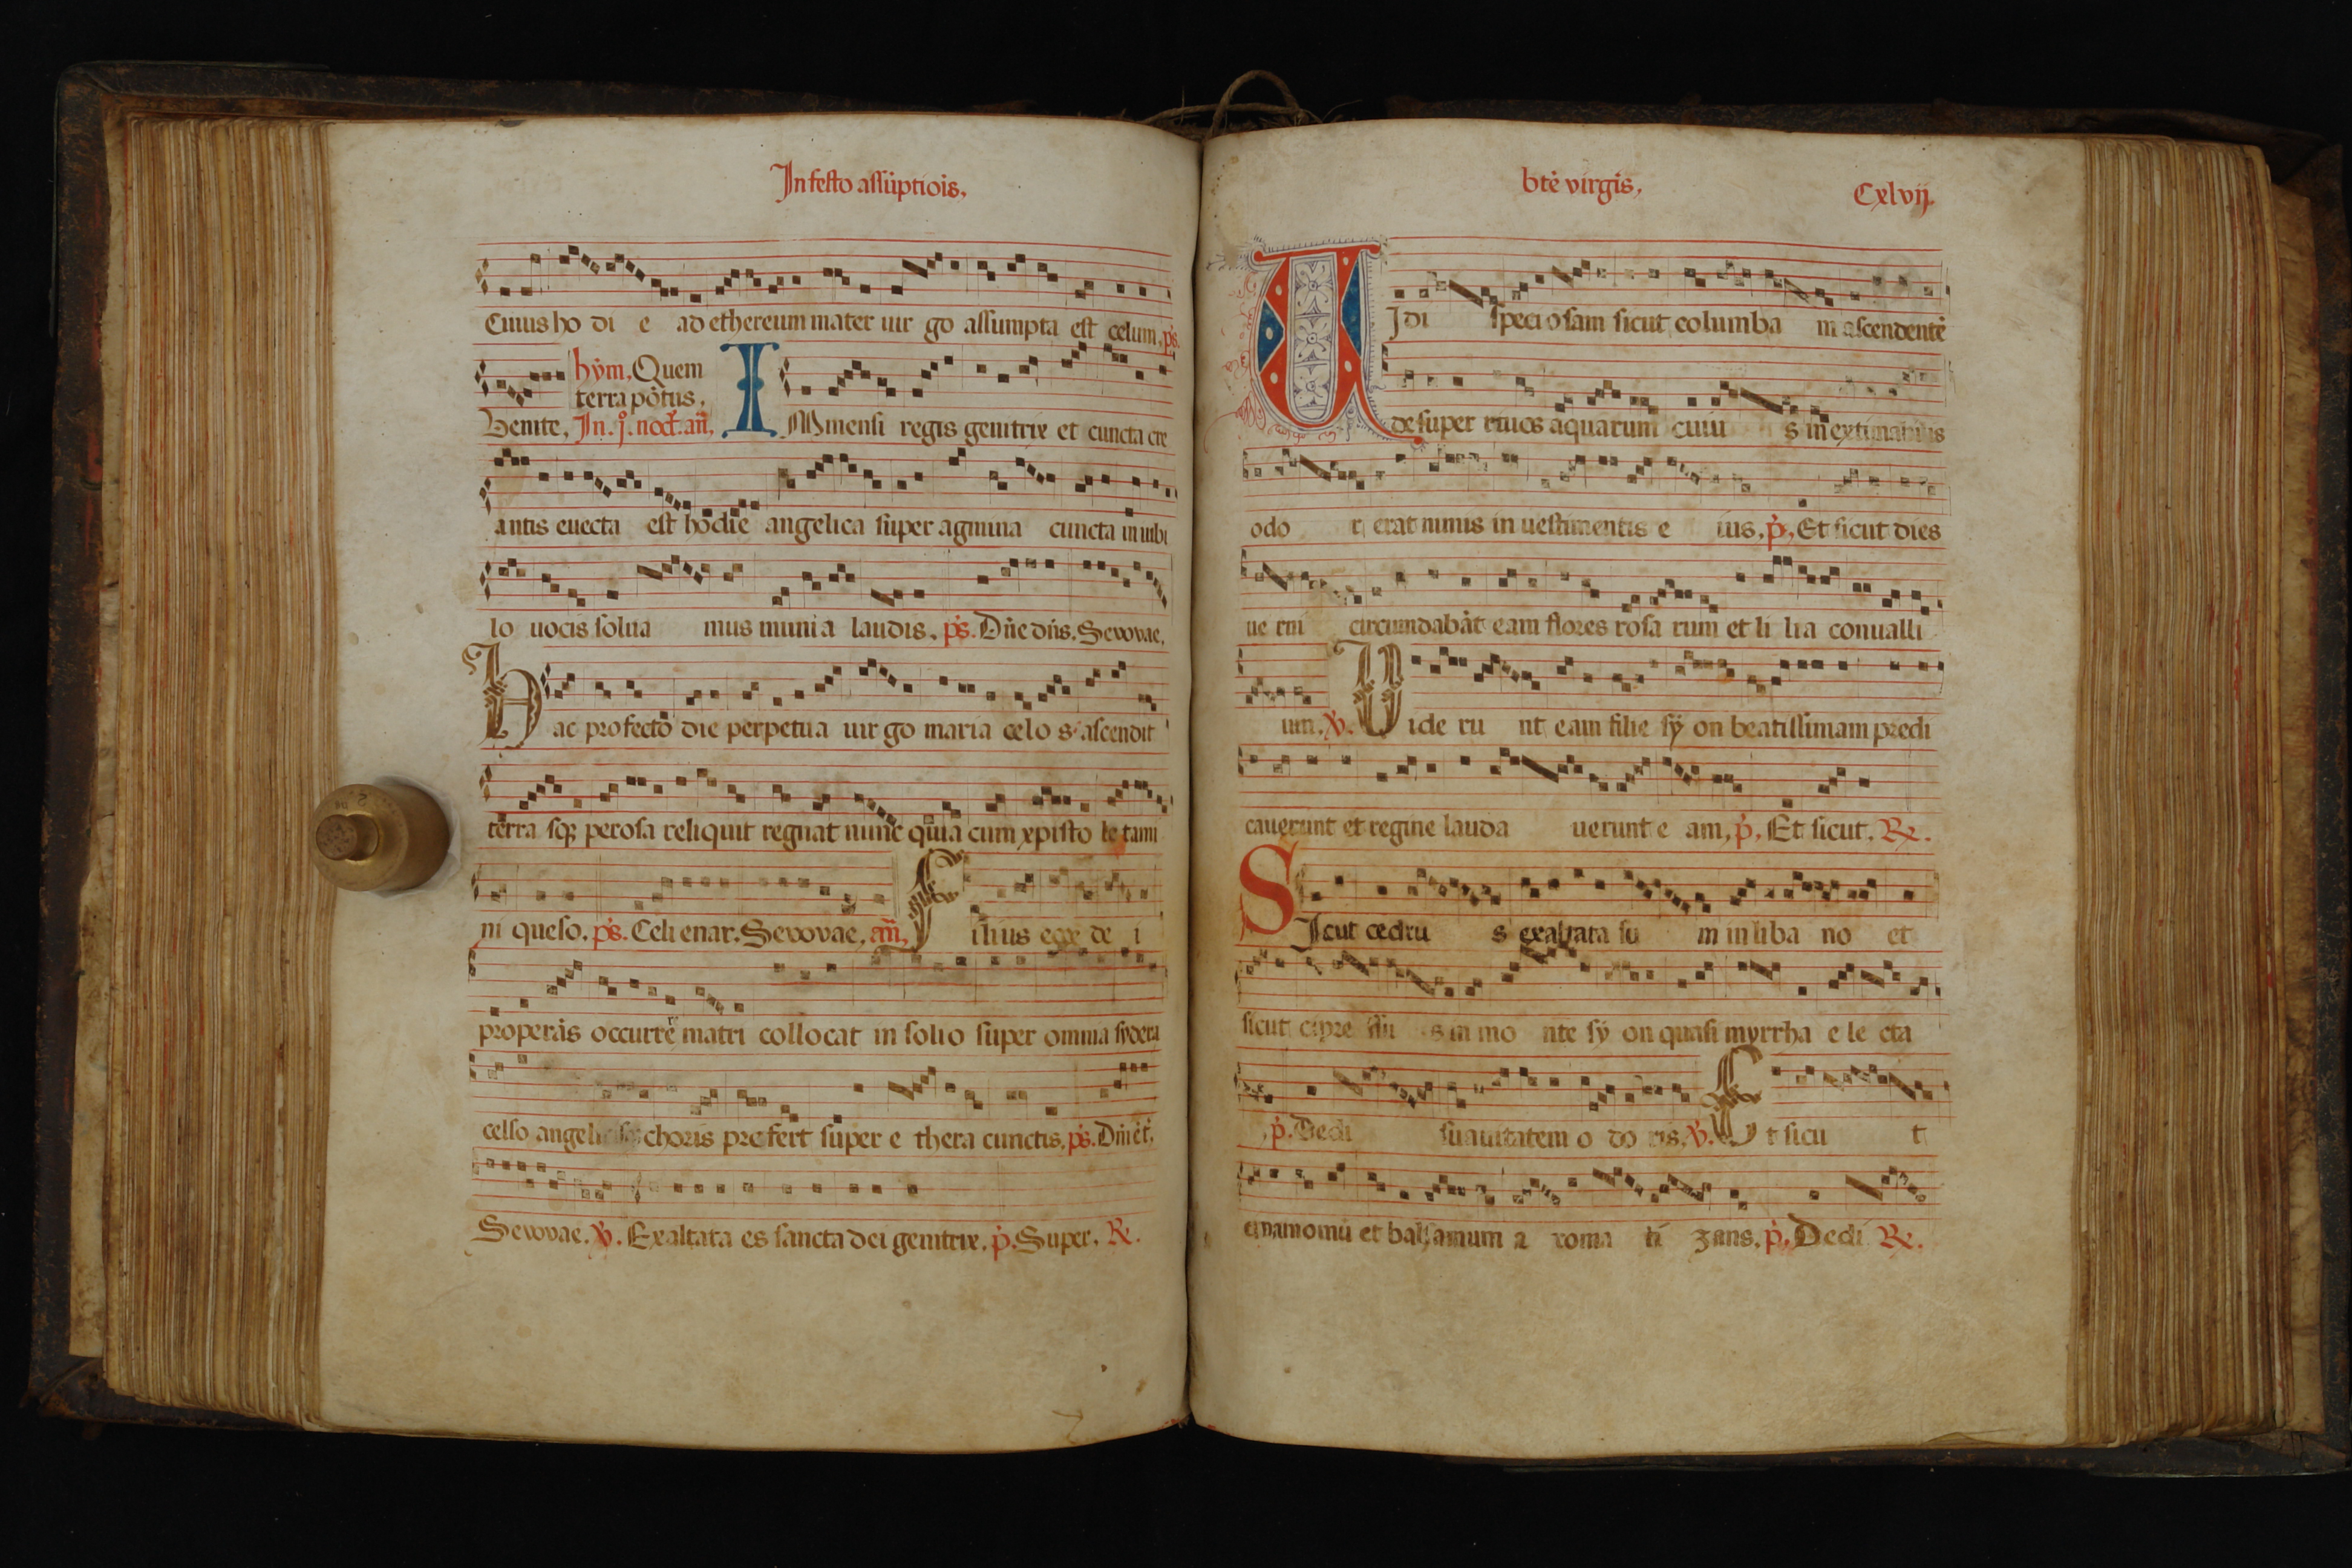 In festo assūptiois.
Cuius ho di e ad ethereum mater uir go assumpta est celum. ps.
hym. Quem
terra pōtus.
Venite. In. j. noct. an. I Mmensi regis genitrix et cuncta cre
antis euecta est hodie angelica super agmina cuncta in iubi
lo uocis solua mus munia laudis. ps. Dn̄e dn̄s. Seuouae.
Hac profecto die perpetua uir go maria celo s ascendit
terra sqꝫ perosa reliquit regnat nunc quia cum xpisto le tami
ni queso. ps. Celi enar. Seuouae. an. F ilius ecce de i
properās occurrē matri collocat in solio super omnia sydera
celso choris prefert super e thera cunctis. ps. Dn̄i ēt.
Seuouae. ℣. Exaltata es sancta dei genitrix. p. Super. ℟.
btē virgīs.
Cxlvij.
VJdi speciosam sicut columba m ascendentē
de super riuos aquarum cuiu s inextimabilis
odo r erat nimis in uestimentis e ius. p. Et sicut dies
ue rni circumdabāt eam flores rosa rum et li lia conualli
um. ℣. Uide ru nt eam filie sy on beatissimam predi
cauerunt et regine lauda uerunt e am. p. Et sicut. ℟.
SJcut cedru s exaltata su m in liba no et
sicut cipre ssu s in mo nte sy on quasi myrrha e le cta
p. Dedi suauitatem o do ris. ℣. Et sicu t
cinamomū et balsamum a roma ti zans. p. Dedi ℟.